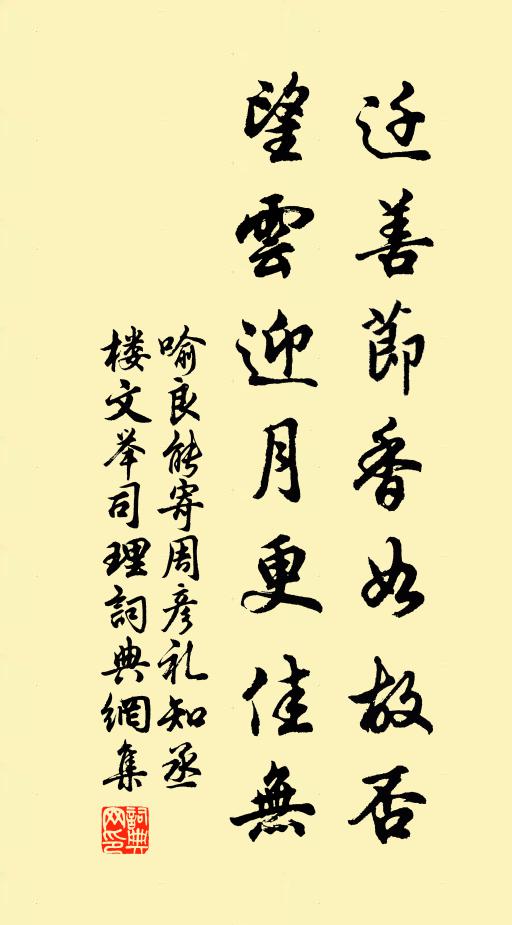 迁善莭香如故否
望雲迎月更佳無
喻良能寄周彦礼知丞
楼文举司理詞典網集
詞典
网印